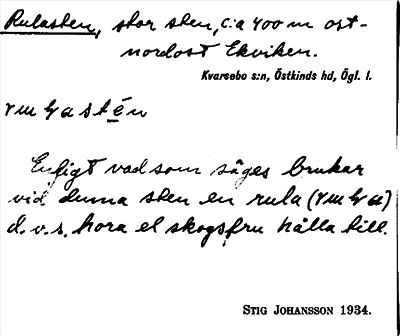 Rulasten, stor sten, c:a 400 m ost-
nordost Ekviken.
Kvarsebo s:n, Östkinds hd, Ögl. l.
Enligt vad som säges brukar
vid denna sten en rula
d.v.s. hora el skogsfru hålla till.
STIG JOHANSSON 1934.